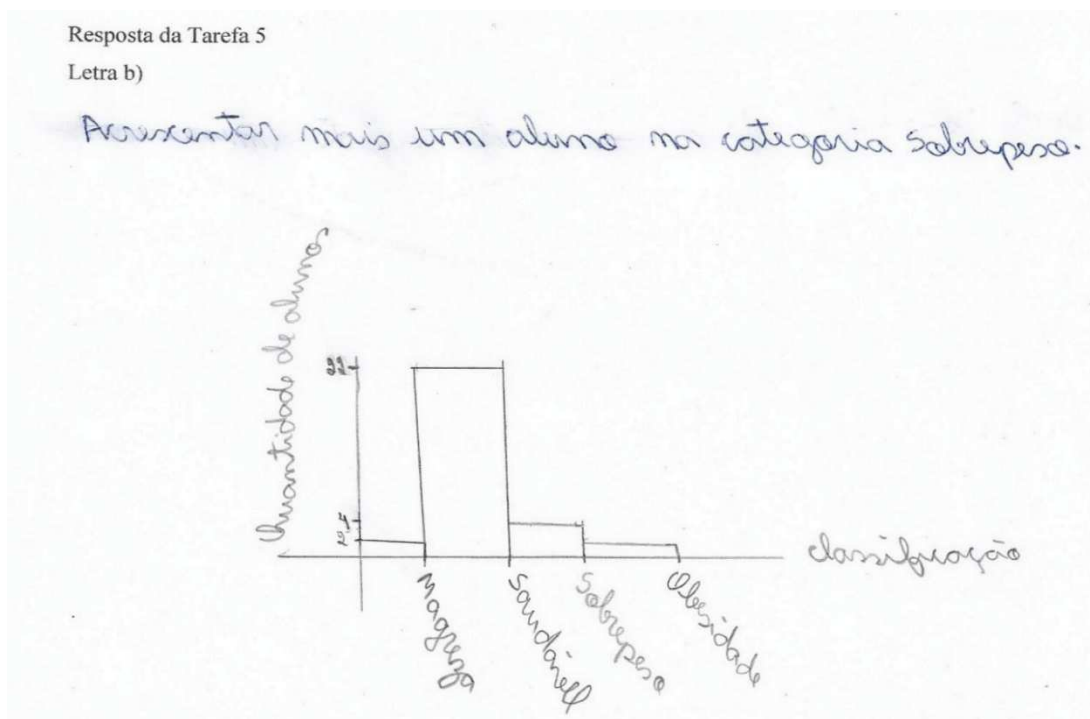 Resposta da Tarefa 5
Letra b)
Acrescentar mais um aluno na categoria Sobrepeso.
Quantidade de alunos
22
4
2
classificação
Magreza
Saudável
Sobrepeso
Obesidade